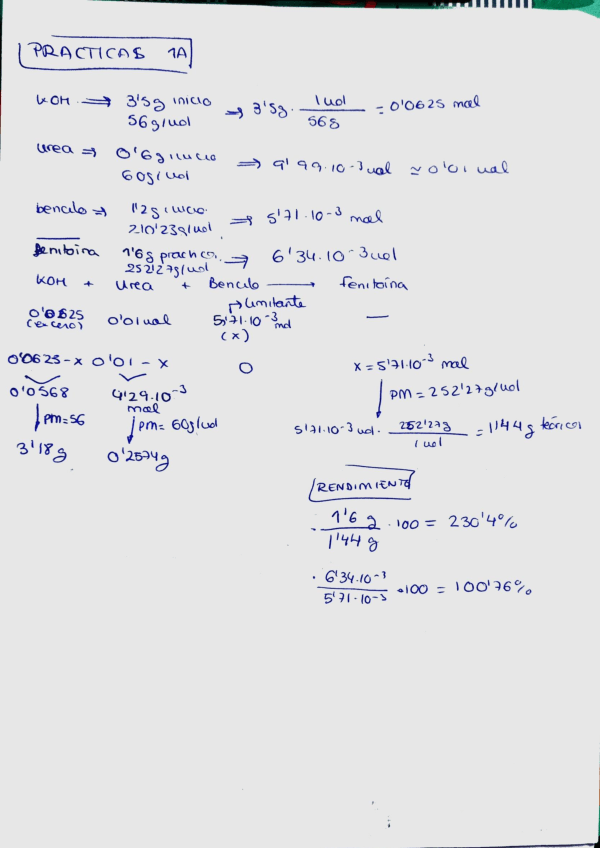 PRACTICAS 1A
KOH ⟹ 3'5g inicio → 3'5g · 1 mol / 56g = 0'0625 mol
56g/mol
Urea ⇒ 0'6g inicio ⟹ 9'99·10-3 mol ≃ 0'01 mol
60g/mol
bencilo ⇒ 1'2g inicio ⟹ 5'71·10-3 mol
210'23g/mol
fenitoina 1'6g practicos ⟹ 6'34·10-3 mol
252'27g/mol
KOH + Urea + Bencilo ⟶ fenitoína
↳ limitante
0'0625 0'01 mol 5'71·10-3 mol —
(exceso) (x)
0'0625-x 0'01-x 0 x = 5'71·10-3 mol
0'0568 4'29·10-3 mol ↓ PM = 252'27g/mol
↓ PM=56 ↓ PM= 60g/mol 5'71·10-3 mol · 252'27g / 1 mol = 1'44 g teóricos
3'18g 0'2574g
RENDIMIENTO
· 1'6 g / 1'44 g · 100 = 230'4%
· 6'34·10-3 / 5'71·10-3 · 100 = 100'76%